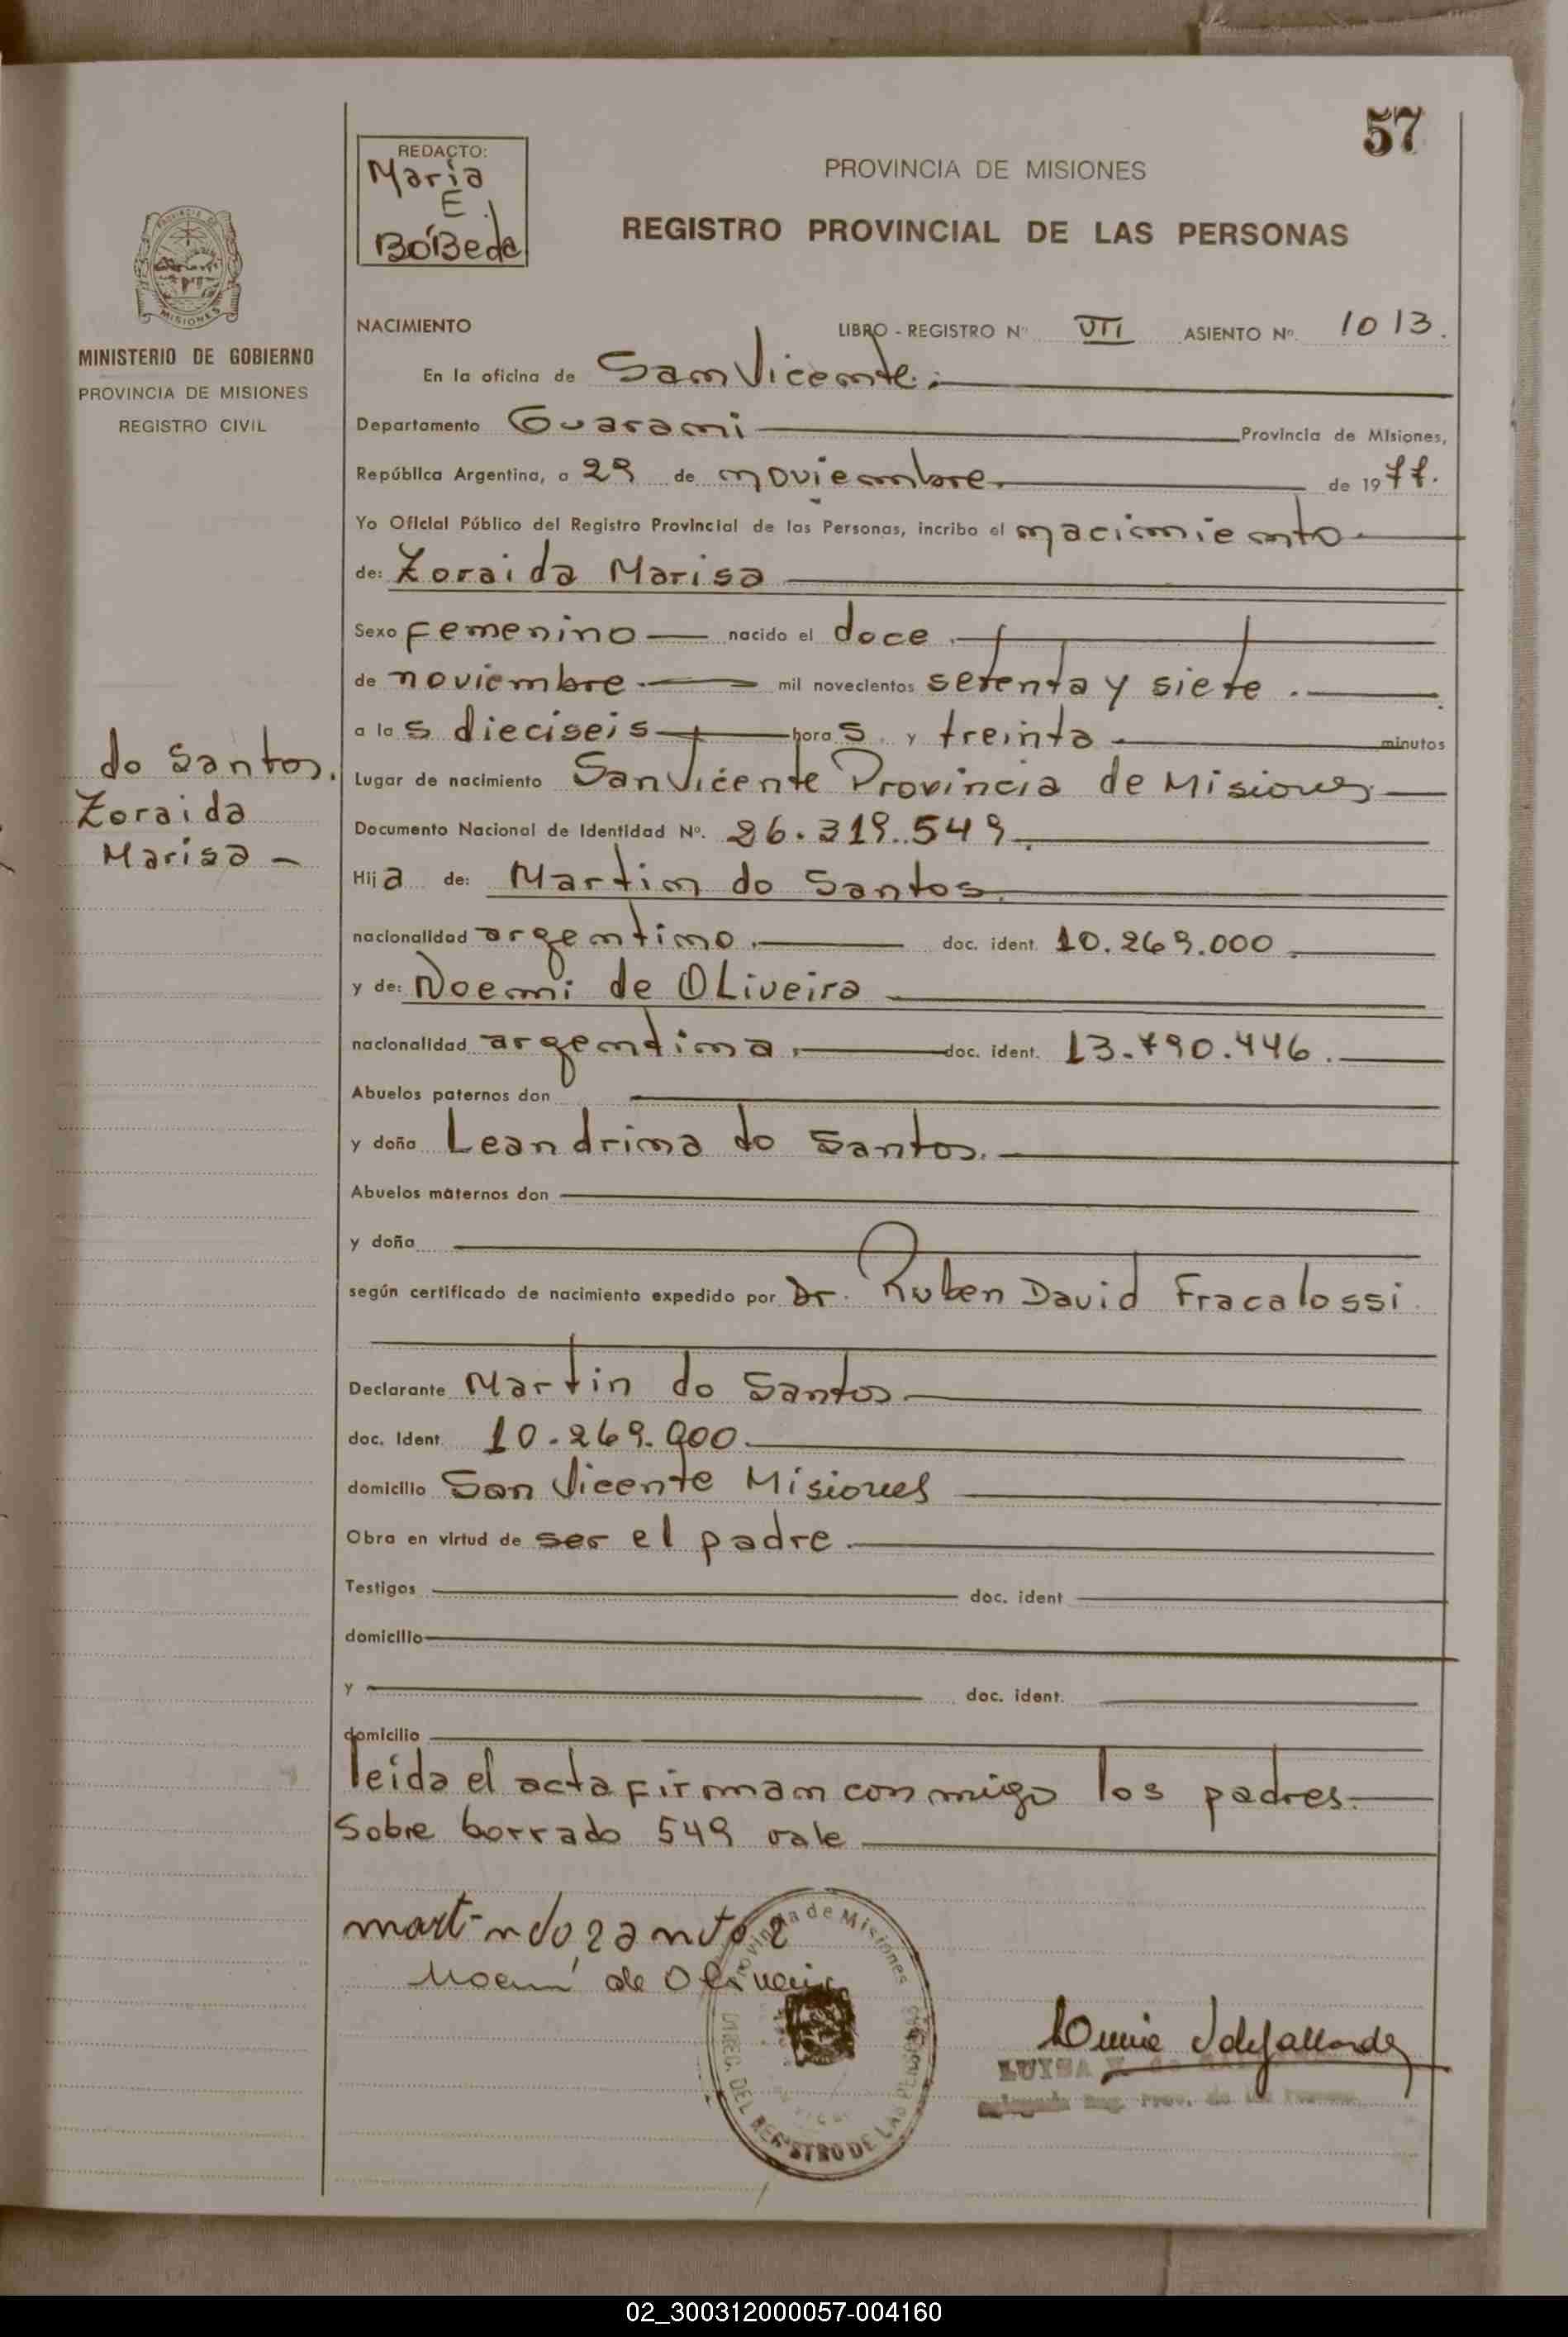 57
REDACTO:
Maria
E.
BóBeda
PROVINCIA DE MISIONES
REGISTRO PROVINCIAL DE LAS PERSONAS
MISIONES
MINISTERIO DE GOBIERNO
PROVINCIA DE MISIONES
REGISTRO CIVIL
do Santos.
Zoraida
Marisa -
NACIMIENTO LIBRO - REGISTRO Nº VII ASIENTO Nº. 1013.
En la oficina de San Vicente.
Departamento Guarani Provincia de Misiones,
República Argentina, a 29 de noviembre. de 1977.
Yo Oficial Público del Registro Provincial de las Personas, incribo el nacimiento
de: Zoraida Marisa
Sexo femenino nacido el doce.
de noviembre. mil novecientos setenta y siete.
a las dieciseis horas. y treinta minutos
Lugar de nacimiento San Vicente Provincia de Misiones
Documento Nacional de Identidad Nº. 26.319.549.
Hija de: Martin do Santos.
nacionalidad argentino. doc. ident. 10.269.000.
y de: Noemi de OLiveira
nacionalidad argentina. doc. ident. 13.790.446.
Abuelos paternos don
y doña Leandrina do Santos.
Abuelos maternos don
y doña
según certificado de nacimiento expedido por Dr. Ruben David Fracalossi
Declarante Martin do Santos
doc. Ident. 10.269.000.
domicilio San Vicente Misiones
Obra en virtud de ser el padre.
Testigos doc. ident
domicilio
y doc. ident.
domicilio
leida el acta firman conmigo los padres.
Sobre borrado 549 vale
martin do zanto2
Noemí de Oliveira
Provincia de Misiones
DIREC. DEL REGISTRO DE LAS PERSONAS
LUISA
Reg. Prov. de las
02_300312000057-004160